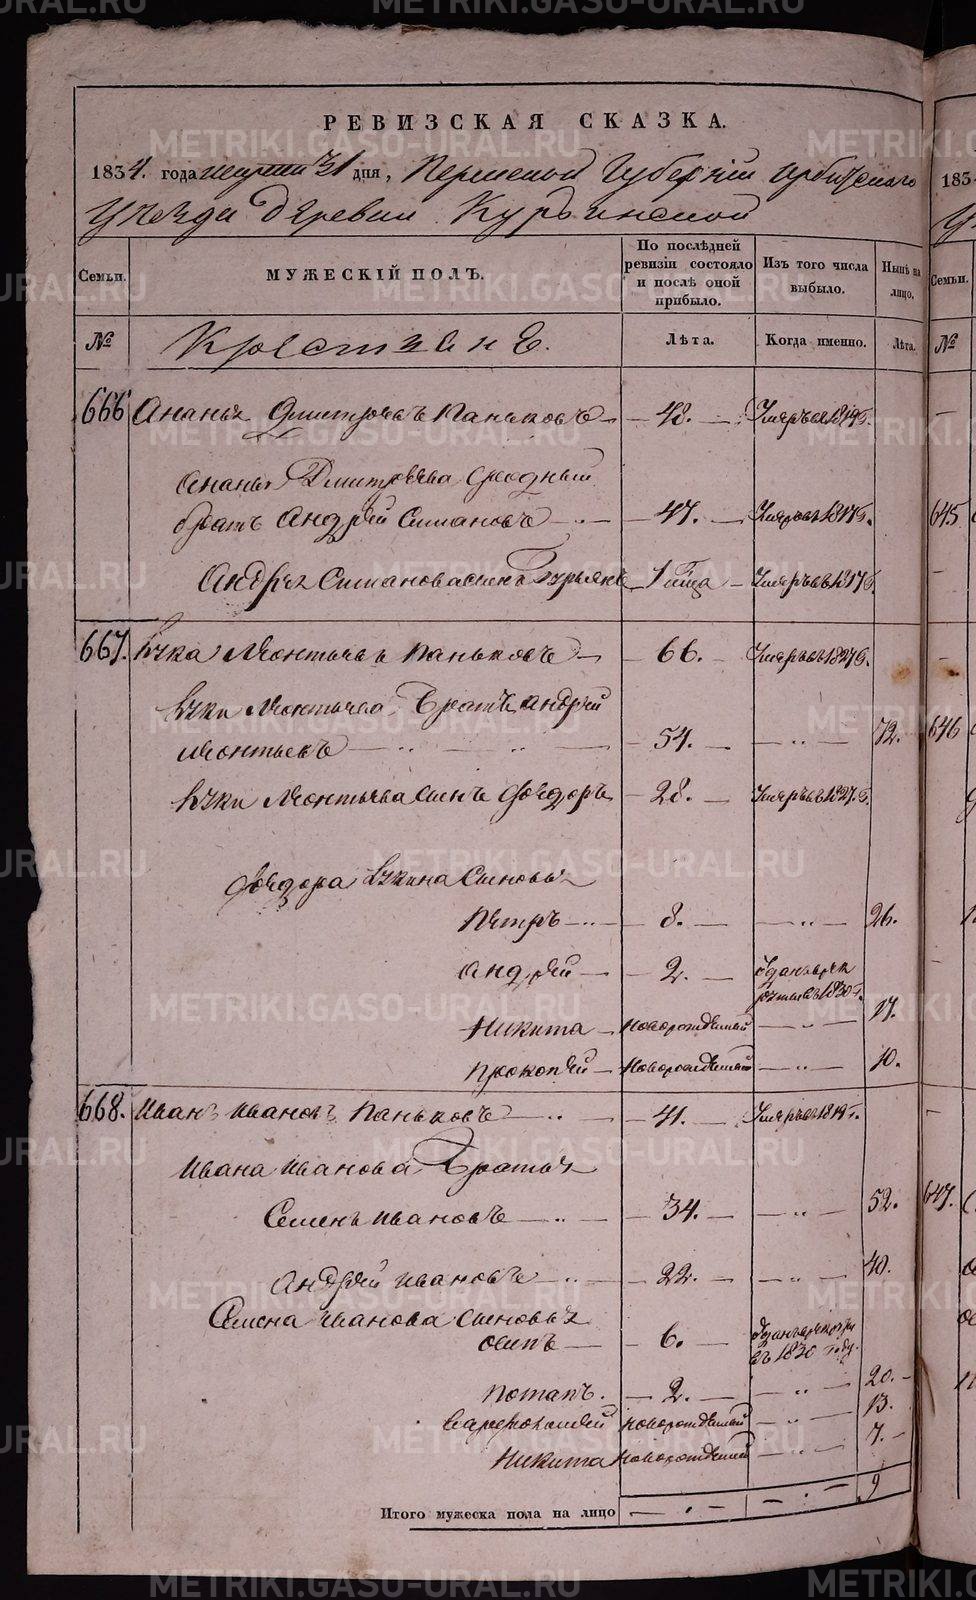 РЕВИЗСКАЯ СКАЗКА.
1834. года марта 31 дня, Пермской Губернiи Ирбитскаго
Уезда деревни Курьинской
Семьи. МУЖЕСКIЙ ПОЛЪ. По послѣдней ревизiи состояло и послѣ оной прибыло. Изъ того числа выбыло. Нынѣ на лицо,
№ Крестьяне. Лѣта. Когда именно. Лѣта.
666 Ананья Дмитревъ Паньковъ 48. Умеръ въ 1819 г.
Ананья Дмитрева сродный
братъ Андрей Симановъ 47. Умеръ въ 1817 г.
Андрея Симанова сынъ Гурьянъ 1 года Умеръ въ 1817 г.
667. Леонтьевъ Паньковъ 66. Умеръ въ 1827 г.
Леонтьева братъ Андрей
Леонтьевъ 54. 72.
Леонтьева сынъ Фёдоръ 28. Умеръ въ 1827. г.
Фёдора сыновья
Пётръ 8. 26.
Андрей 2. въ 1830 г.
Никита новорожденный 17.
Прокопей новорожденный 10.
668. Иванъ Ивановъ Паньковъ 41. Умеръ въ 1819 г.
Ивана Иванова братья
Семенъ Ивановъ 34. 52.
Андрей Ивановъ 22. 40.
Семена Иванова сыновья
Осипъ 6. въ 1830 году.
Потапъ. 2. 20.
новорожденный 13.
Никита новорожденный 7.
Итого мужеска пола на лицо 9
183
Семьи.
№
645
646
647.
METRIKI.GASO-URAL.RU